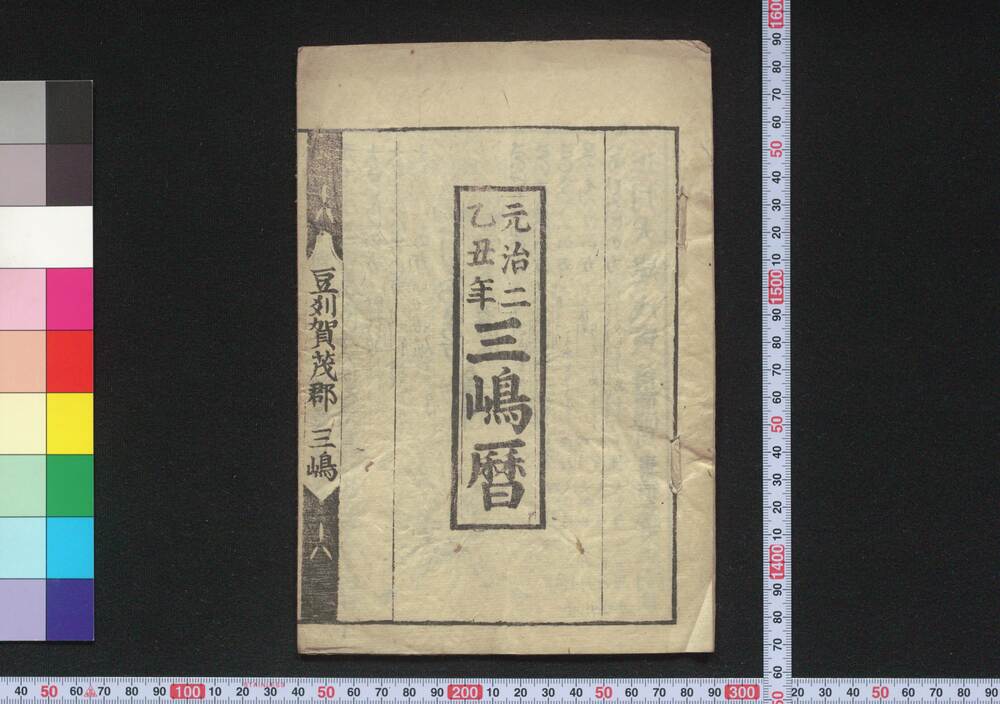 元治二
乙丑年
三嶋暦
豆刕賀茂郡 三嶋
十六
十六
40 50 60 70 80 90 100 10 20 30 40 50 60 70 80 90 200 10 20 30 40 50 60 70 80 90 300 10 20 30 40 50 60 70 80 90
STAINLESS
1600
90
80
70
60
50
40
30
20
10
1500
90
80
70
60
50
40
30
20
10
1400
90
80
70
60
50